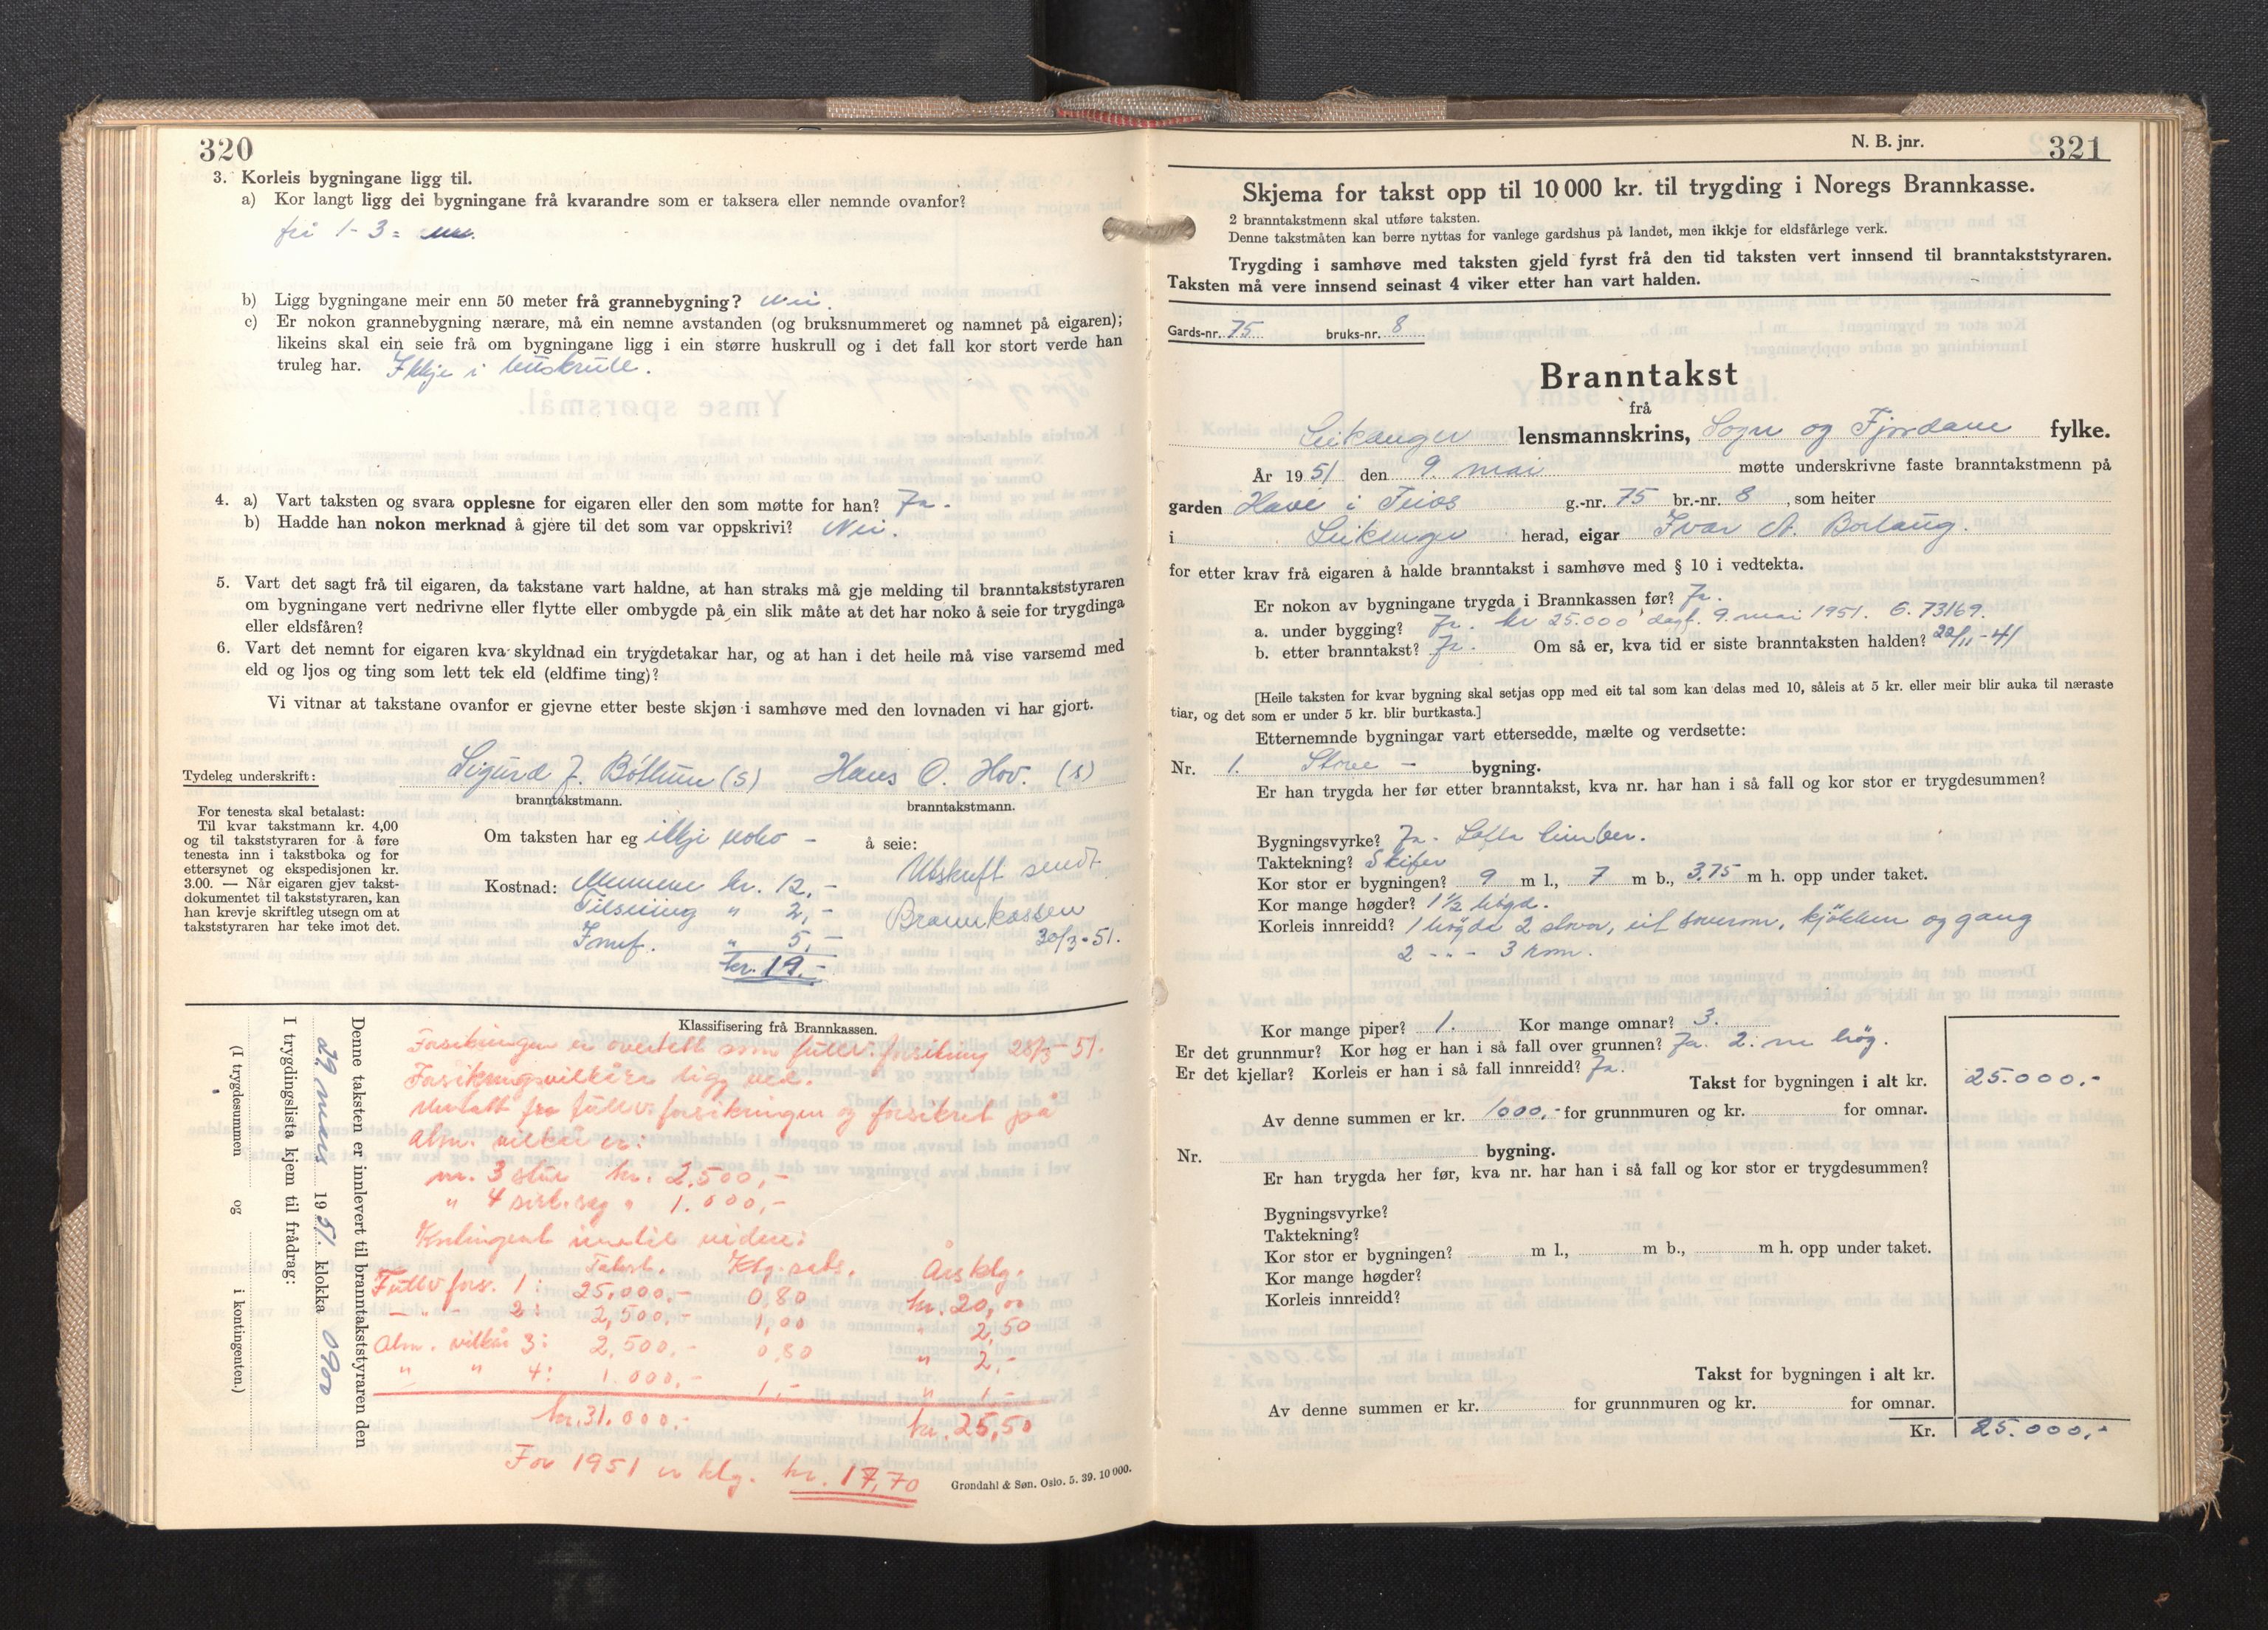 320
3. Korleis bygningane ligg til.
a) Kor langt ligg dei bygningane frå kvarandre som er taksera eller nemnde ovanfor?
1-3 =
b) Ligg bygningane meir enn 50 meter frå grannebygning? Nei.
c) Er nokon grannebygning nærare, må ein nemne avstanden (og bruksnummeret og namnet på eigaren);
likeins skal ein seie frå om bygningane ligg i ein større huskrull og i det fall kor stort verde han
truleg har. Ikkje i huskrull.
4. a) Vart taksten og svara opplesne for eigaren eller den som møtte for han? Ja.
b) Hadde han nokon merknad å gjere til det som var oppskrivi? Nei.
5. Vart det sagt frå til eigaren, da takstane vart haldne, at han straks må gje melding til branntakststyraren
om bygningane vert nedrivne eller flytte eller ombygde på ein slik måte at det har noko å seie for trygdinga
eller eldsfåren?
6. Vart det nemnt for eigaren kva skyldnad ein trygdetakar har, og at han i det heile må vise varsemd med
eld og ljos og ting som lett tek eld (eldfime ting)?
Vi vitnar at takstane ovanfor er gjevne etter beste skjøn i samhøve med den lovnaden vi har gjort.
Tydeleg underskrift: Sigurd J. Bøtun (s) Hans O. Hov. (s)
branntakstmann. branntakstmann.
For tenesta skal betalast:
Til kvar takstmann kr. 4,00
og til takststyraren for å føre
tenesta inn i takstboka og for
ettersynet og ekspedisjonen kr.
3.00. — Når eigaren gjev takst-
dokumentet til takststyraren, kan
han krevje skriftleg utsegn om at
takststyraren har teke imot det.
Om taksten har eg ikkje noko - å seie:
Kostnad: Mennene kr. 12,-
Tilsining " 2,-
Innf. " 5,-
kr. 19.-
Utskrift sendt
Brannkassen
30/3-51.
Klassifisering frå Brannkassen.
Forsikringen er overtatt som fullv. forsikring 28/5-51.
Forsikringsvilkår ligg ved.
Unntatt fra fullv. forsikringen og forsikret på
alm. vilkår er:
nr. 3 stue kr. 2.500,-
" 4 sag " 1.000,-
Kontingent inntil videre:
Takst. Ktg.sats. Årsktg.
Fullv. fors. 1: 25,000.- 0,80 kr. 20,00
- " - 2: 2,500,- 1,00 " 2,50
Alm. vilkår 3: 2,500,- 0,80 " 2,-
" " 4: 1.000,- 1,- " 1,-
kr. 31.000,- kr. 25,50
For 1951 er ktg. kr. 17,70
Grøndahl & Søn. Oslo. 5. 39. 10 000.
Denne taksten er innlevert til branntakststyraren den
29. mars 1951. klokka 0900
I trygdingslista kjem til frådrag:
(I trygdesummen og i kontingenten.)
N. B. jnr. 321
Skjema for takst opp til 10 000 kr. til trygding i Noregs Brannkasse.
2 branntakstmenn skal utføre taksten.
Denne takstmåten kan berre nyttas for vanlege gardshus på landet, men ikkje for eldsfårlege verk.
Trygding i samhøve med taksten gjeld fyrst frå den tid taksten vert innsend til branntakststyraren.
Taksten må vere innsend seinast 4 viker etter han vart halden.
Gards-nr. 75 bruks-nr. 8
Branntakst
frå
Leikanger lensmannskrins, Sogn og Fjordane fylke.
År 1951 den 9. mai møtte underskrivne faste branntakstmenn på
garden Have i Feios g.-nr. 75 br.-nr. 8, som heiter
i Leikanger herad, eigar Ivar A. Borlaug.
for etter krav frå eigaren å halde branntakst i samhøve med § 10 i vedtekta.
Er nokon av bygningane trygda i Brannkassen før? Ja.
a. under bygging? Ja. kr 25.000 dagt. 9. mai 1951. G. 73169.
b. etter branntakst? Ja. Om så er, kva tid er siste branntaksten halden? 22/11-41
[Heile taksten for kvar bygning skal setjas opp med eit tal som kan delas med 10, såleis at 5 kr. eller meir blir auka til næraste
tiar, og det som er under 5 kr. blir burtkasta.]
Etternemnde bygningar vart ettersedde, mælte og verdsette:
Nr. 1. Stove - bygning.
Er han trygda her før etter branntakst, kva nr. har han i så fall og kor stor er trygdesummen?
Bygningsvyrke? Ja. Lafta timber.
Taktekning? Skifer
Kor stor er bygningen? 9 m l., 7 m b., 3,75 m h. opp under taket.
Kor mange høgder? 1 1/2 høgd.
Korleis innreidd? 1 høgda 2 stovor, eit soverom, kjøkken og gang
2 - " - 3 rom.
Kor mange piper? 1. Kor mange omnar? 3.
Er det grunnmur? Kor høg er han i så fall over grunnen? Ja. 2. m høg.
Er det kjellar? Korleis er han i så fall innreidd? Ja.
Takst for bygningen i alt kr. 25.000.-
Av denne summen er kr. 1000,- for grunnmuren og kr. for omnar.
Nr. bygning.
Er han trygda her før, kva nr. har han i så fall og kor stor er trygdesummen?
Bygningsvyrke?
Taktekning?
Kor stor er bygningen? m l., m b., m h. opp under taket.
Kor mange høgder?
Korleis innreidd?
Takst for bygningen i alt kr.
Av denne summen er kr. for grunnmuren og kr. for omnar.
Kr. 25.000,-